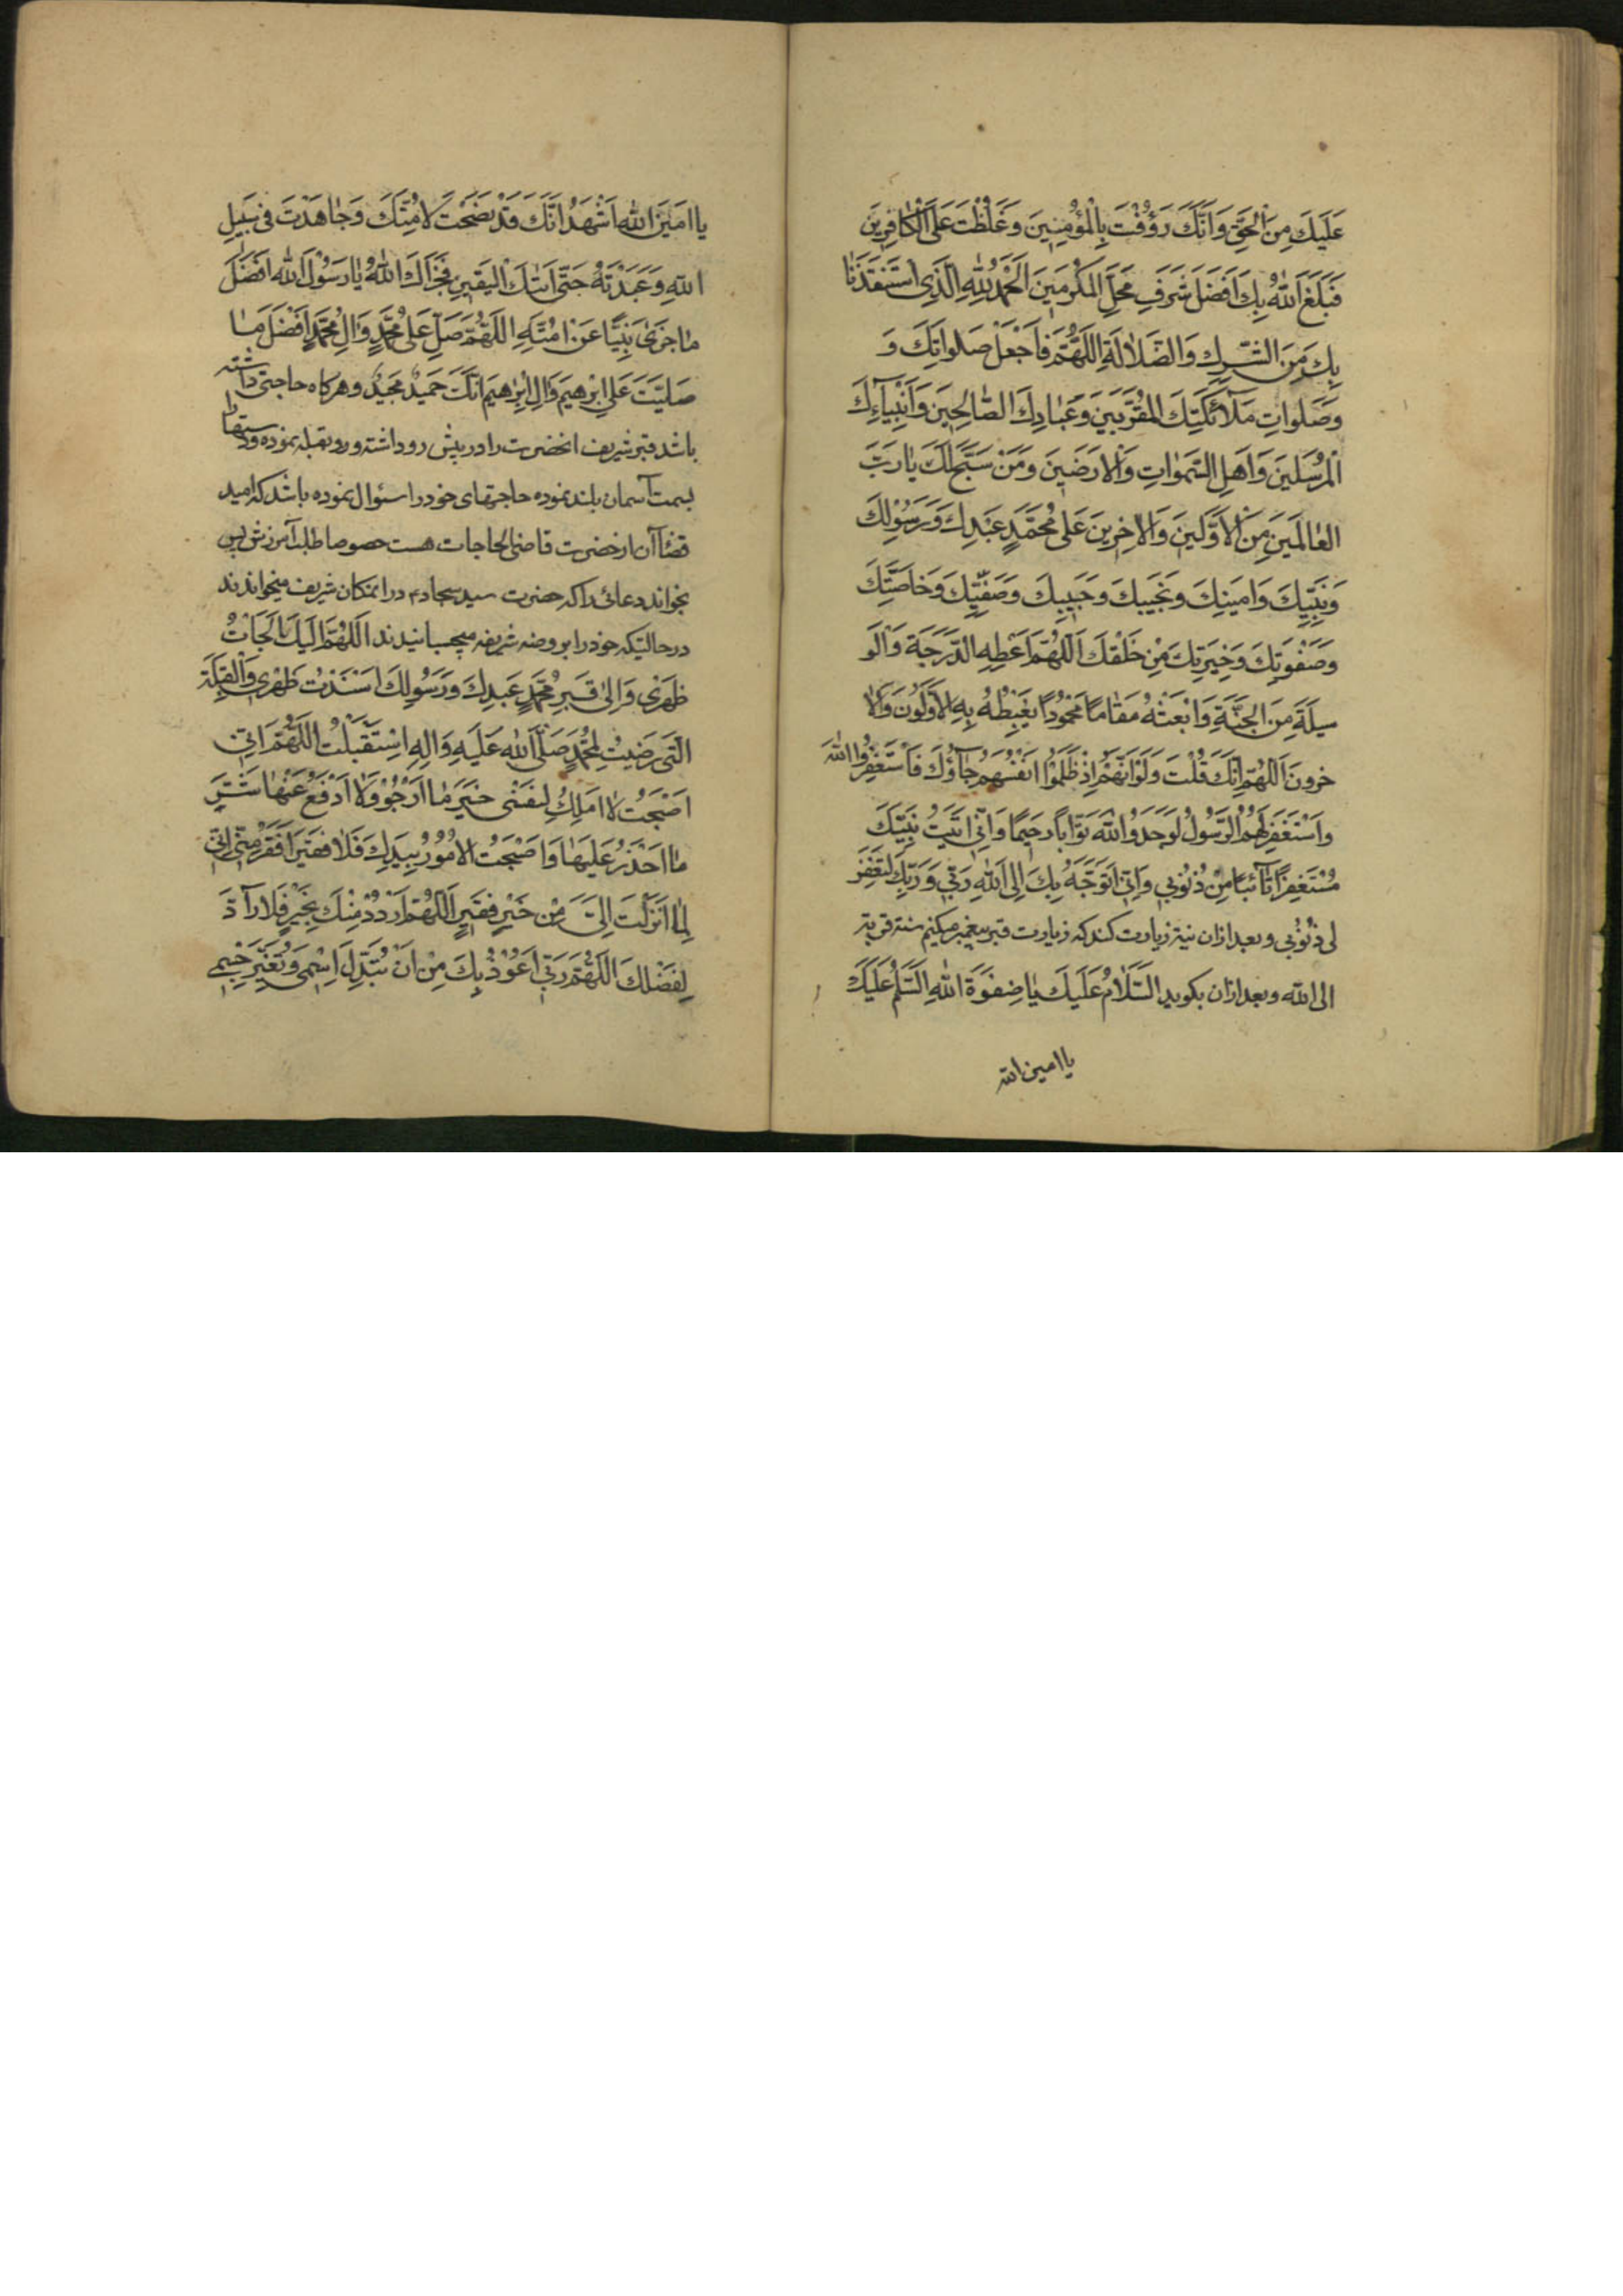 عَلَيْكَ مِنَ الْحَقِّ وَاَنَّكَ رَؤُفْتَ بِالْمُؤْمِنِينَ وَغَلُظْتَ عَلَى الْكافِرِينَ
فَبَلَغَ اللهُ بِكَ اَفْضَلَ شَرَفِ مَحَلِّ الْمُكَرَّمِينَ اَلْحَمْدُ لِلّهِ الَّذِى اسْتَنْقَذَنا
بِكَ مِنَ الشِّرْكِ وَالضَّلالَةِ اللّهُمَّ فَاجْعَلْ صَلَواتِكَ وَ
وَصَلَواتِ مَلآئِكَتِكَ الْمُقَرَّبِينَ وَعِبادِكَ الصّالِحِينَ وَاَنْبِيآءِكَ
الْمُرْسَلِينَ وَاَهْلِ السَّمَواتِ وَالْاَرَضِينَ وَمَنْ سَبَّحَ لَكَ يا رَبَّ
الْعالَمِينَ مِنَ الْاَوَّلِينَ وَالْاخِرِينَ عَلى مُحَمَّدٍ عَبْدِكَ وَرَسُولِكَ
وَنَبِيِّكَ وَاَمِينِكَ وَنَجِيبِكَ وَحَبِيبِكَ وَصَفِيِّكَ وَخاصَّتِكَ
وَصَفْوَتِكَ وَخِيَرَتِكَ مِنْ خَلْقِكَ اَللّهُمَّ اَعْطِهِ الدَّرَجَةَ وَالْوَ
سِيلَةَ مِنَ الْجَنَّةِ وَابْعَثْهُ مَقامًا مَحْمُودًا يَغْبِطُهُ بِهِ الْاَوَّلُونَ وَالْا
خِرونَ اَللّهُمَّ اِنَّكَ قُلْتَ وَلَوْ اَنَّهُمْ اِذْ ظَلَمُوا اَنْفُسَهُمْ جآؤُكَ فَاسْتَغْفَرُوا اللهَ
وَاسْتَغْفَرَ لَهُمُ الرَّسُولُ لَوَجَدُوا اللهَ تَوّابًا رَحِيمًا وَاِنِّى اَتَيْتُ نَبِيَّكَ
مُسْتَغْفِرًا تآئِبًا مِنْ ذُنُوبِى وَاِنِّى اَتَوَجَّهُ بِكَ اِلَى اللهِ رَبِّى وَرَبِّكَ لِيَغْفِرَ
لى ذُنُوبِى وبعد ازان نیة زیارت کند که زیارت قبر پیغمبر میکنم سنة قربة
الى الله وبعد ازان بکوید السَّلامُ عَلَيْكَ يا صِفْوَةَ اللهِ السَّلمُ عَلَيْكَ
يا امين الله
يا اَمِينَ اللهِ اَشْهَدُ اَنَّكَ قَدْ نَصَحْتَ لاُمَّتِكَ وَجاهَدْتَ فى سَبِيلِ
اللهِ وَعَبَدْتَهُ حَتّى اَتيكَ الْيَقِينُ فَجَزاكَ اللهُ يا رَسُولَ اللهِ اَفْضَلَ
ما جَزى نَبِيًّا عَنْ اُمَّتِهِ اللّهُمَّ صَلِّ عَلى مُحَمَّدٍ وَالِ مُحَمَّدٍ اَفْضَلَ ما
صَلَّيْتَ عَلى اِبْرهِيمَ وَالِ اِبْرهِيمَ اِنَّكَ حَمِيدٌ مَجِيدٌ وهرکاه حاجتى داشته
باشد قبر شریف انحضرت را در پیش رو داشته ورو بقبله نموده ودستها
بسمت آسمان بلند نموده حاجتهاى خود را سئوال نموده باشد که امید
قضاآن از حضرت قاضى الحاجات هست خصوصا طلب آمرزش پس
بخواند دعائى را که حضرت سید سجاد در انمکان شریف میخواندند
در حالتیکه خود را بروضه شریفه میچسبانیدند اَللّهُمَّ اِلَيْكَ اَلْجَأْتُ
ظَهْرِى وَاِلى قَبْرِ مُحَمَّدٍ عَبْدِكَ وَرَسُولِكَ اَسْنَدْتُ ظَهْرِى وَالْقِبْلَةَ
الَّتى رَضِيتَ لِمُحَمَّدٍ صَلَّى اللهُ عَلَيْهِ وَالِهِ اسْتَقْبَلْتُ اللّهُمَّ اِنّى
اَصْبَحْتُ لا اَمْلِكُ لِنَفْسى خَيْرَ ما اَرْجُوْ وَلا اَدْفَعُ عَنْها شَرَّ
ما اَحْذَرُ عَلَيْها وَاَصْبَحَتِ الْاُمُورُ بِيَدِكَ فَلا فَقِيرَ اَفْقَرُ مِنّى اِنّى
لِما اَنْزَلْتَ اِلَىَّ مِنْ خَيْرٍ فَقِيرٌ اَللّهُمَّ ارْدُدْنى مِنْكَ بِخَيْرٍ فَلا رآدَّ
لِفَضْلِكَ اللّهُمَّ رَبّى اَعُوذُ بِكَ مِنْ اَنْ تُبَدِّلَ اِسْمى وَتُغَيِّرَ جِسْمى